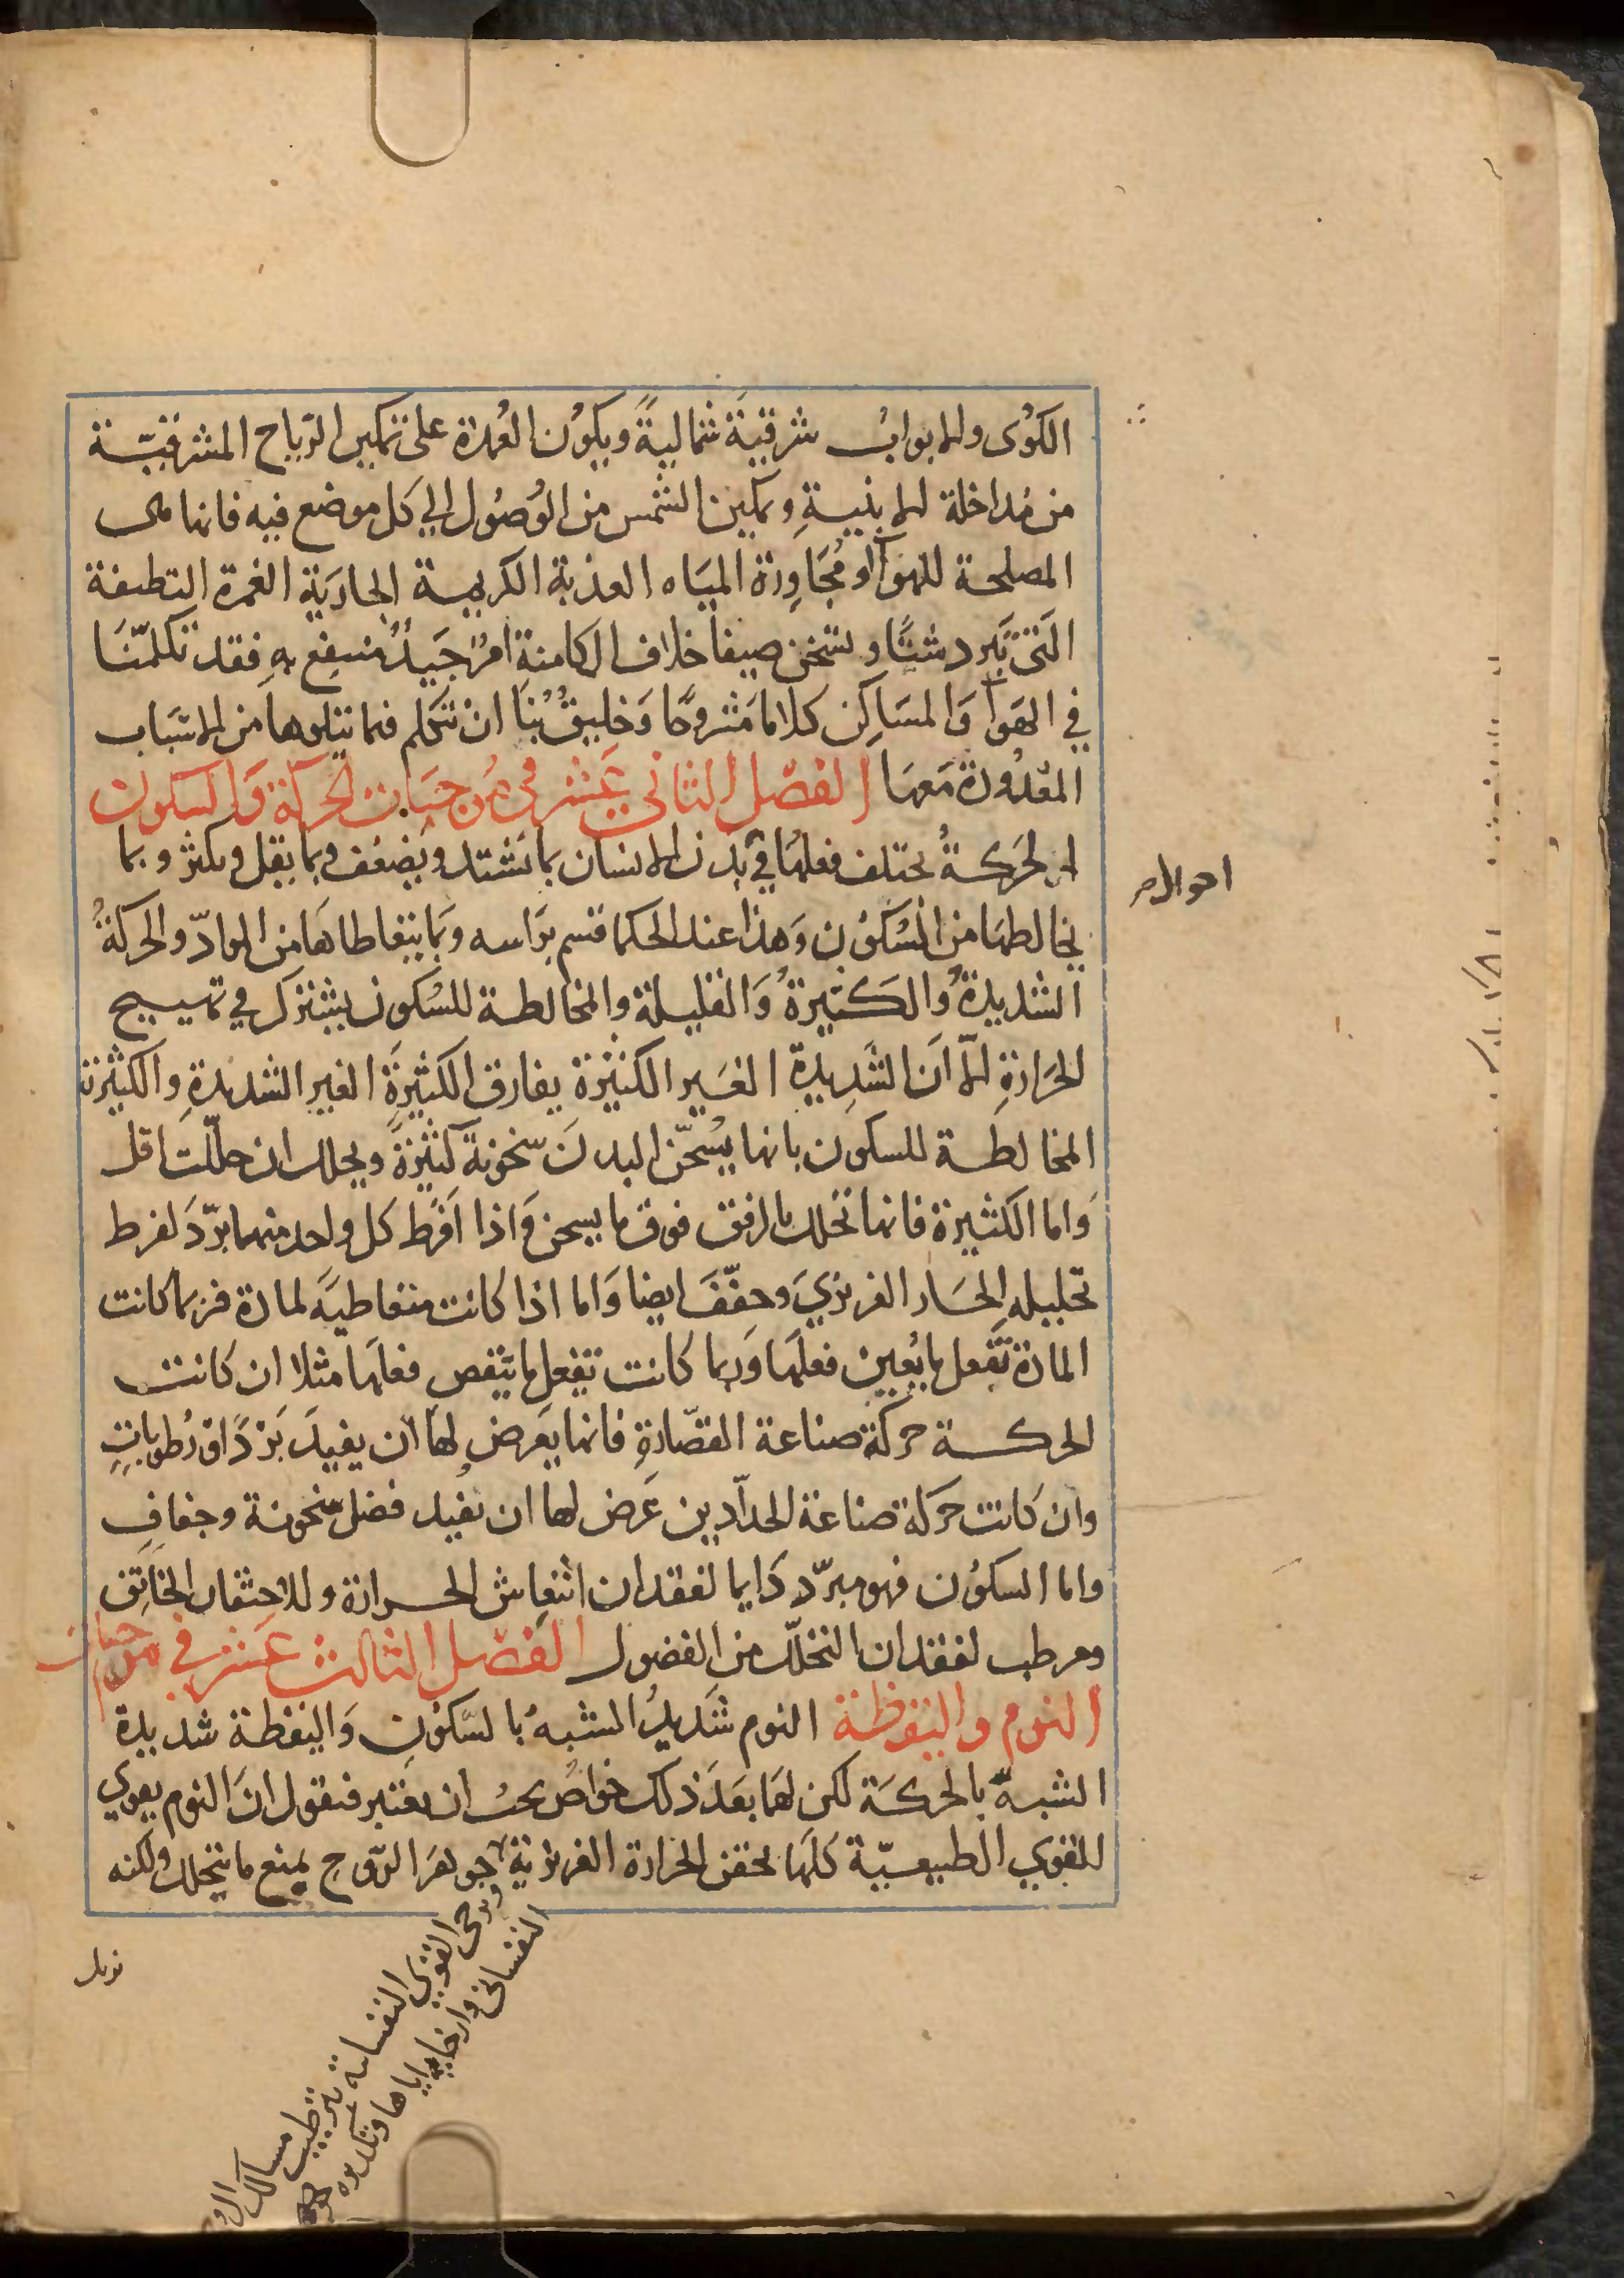 الكوى والابواب شرقية شمالية ويكون العمدة على تمكين الرياح المشرقية
من مداخلة الابنية وتمكين الشمس من الوصول الي كل موضع فيه فانها هى
المصلحة للهوآ ومجاورة المياه العذبة الكريمة الجارية الغمرة النظيفة
التى تبرد شتآ وتسخن صيفا خلاف الكامنة امر جيد منتفع به فقد تكلمنا
في الهوآ والمساكن كلاما مشروحا وخليق بنا ان نتكلم فيما يتلوها من الاسباب
المعدودة معها الفصل الثاني عشر في موجبات الحركة والسكون
الحركة يختلف فعلها في بدن الانسان بما تشتد ويضعف وبما يقل ويكثر وبما
يخالطها من السكون وهذا عند الحكما قسم براسه وبما يتعاطاها من المواد والحركة
الشديدة والكثيرة والقليلة والمخالطة للسكون يشترك في تهييج
الحرارة الا ان الشديدة الغير الكثيرة يفارق الكثيرة الغير الشديدة والكثيرة
المخالطة للسكون بانها يسخن البدن سخونة كثيرة ويحلل ان حللت اقل
واما الكثيرة فانها تحلل بالرفق فوق ما يسخن واذا افرط كل واحد منهما برد لفرط
تحليله الحار الغريزي وجفف ايضا واما اذا كانت متعاطية لمادة فربما كانت
المادة تفعل ما يعين فعلها وربما كانت تفعل ما ينقص فعلها مثلا ان كانت
الحركة حركة صناعة القصارة فانها يعرض لها ان يفيد بردا ورطوبات
وان كانت حركة صناعة الحدادين عرض لها ان يفيد فضل سخونة وجفاف
واما السكون فهو مبرد دايما لفقدان انتعاش الحرارة وللاحتقان الخانق
ومرطب لفقدان التحلل من الفضول الفصل الثالث عشر في موجبات
النوم واليقظة النوم شديد الشبه بالسكون واليقظة شديدة
الشبه بالحركة لكن لهما بعد ذلك خواص يجب ان يعتبر فنقول ان النوم يقوي
القوي الطبيعية كلها بحقن الحرارة الغريزية جوهر الروح يمنع ما يتحلل ولكنه
ويرخى القوي النفسانية بترطيب مسالك الروح
النفسانى وارخايه اياها وتكديره جوهر
احوال